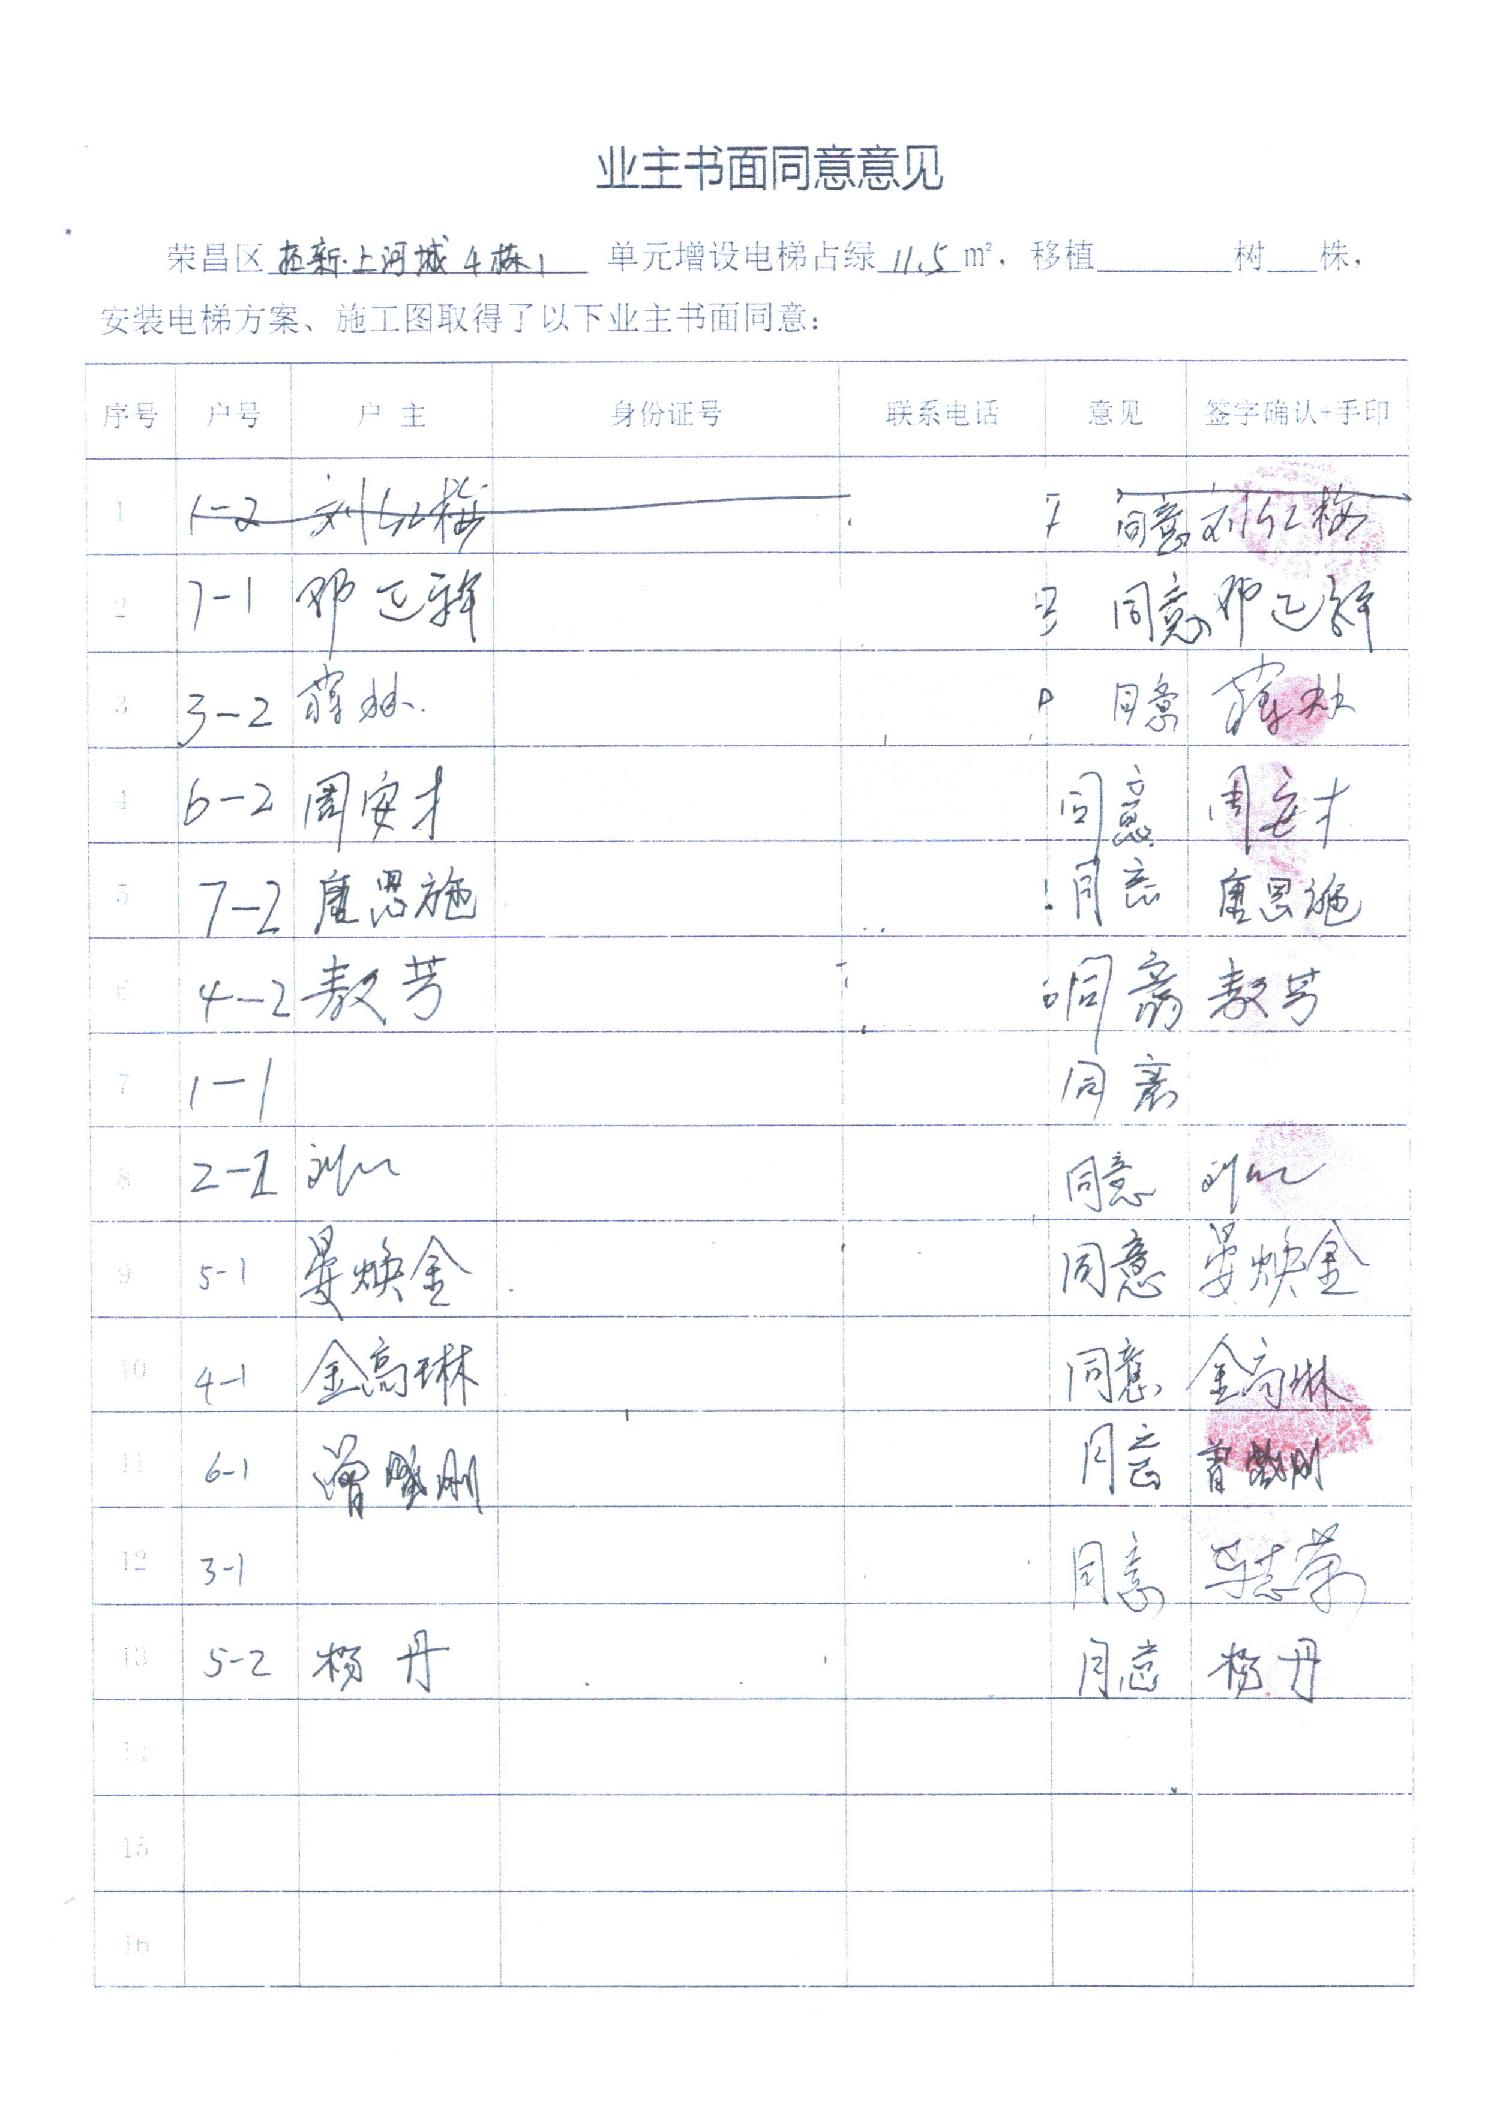 业主书面同意意见
荣昌区 新·上河城4栋1 单元增设电梯占绿 11.5 m²，移植________树___株，
安装电梯方案、施工图取得了以下业主书面同意：
序号 户号 户 主 身份证号 联系电话 意见 签字确认+手印
1 1-2 刘红梅 同意 刘红梅
2 7-1 邓正 同意 邓正
3 3-2 薛林 同意 薛林
4 6-2 周安才 同意 周安才
5 7-2 唐恩施 同意 唐恩施
6 4-2 敖芳 同意 敖芳
7 1-1 同意
8 2-1 刘 同意 刘
9 5-1 晏焕金 同意 晏焕金
10 4-1 金高琳 同意 金高琳
11 6-1 刚 同意 曾 刚
12 3-1 同意 志荣
13 5-2 杨丹 同意 杨丹
14
15
16